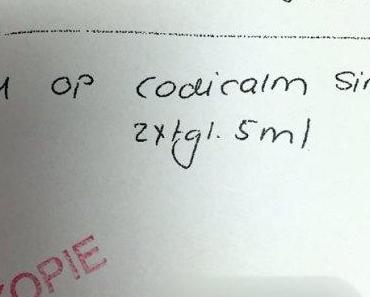 OP Codicalm
2xtgl. 5ml
KOPIE